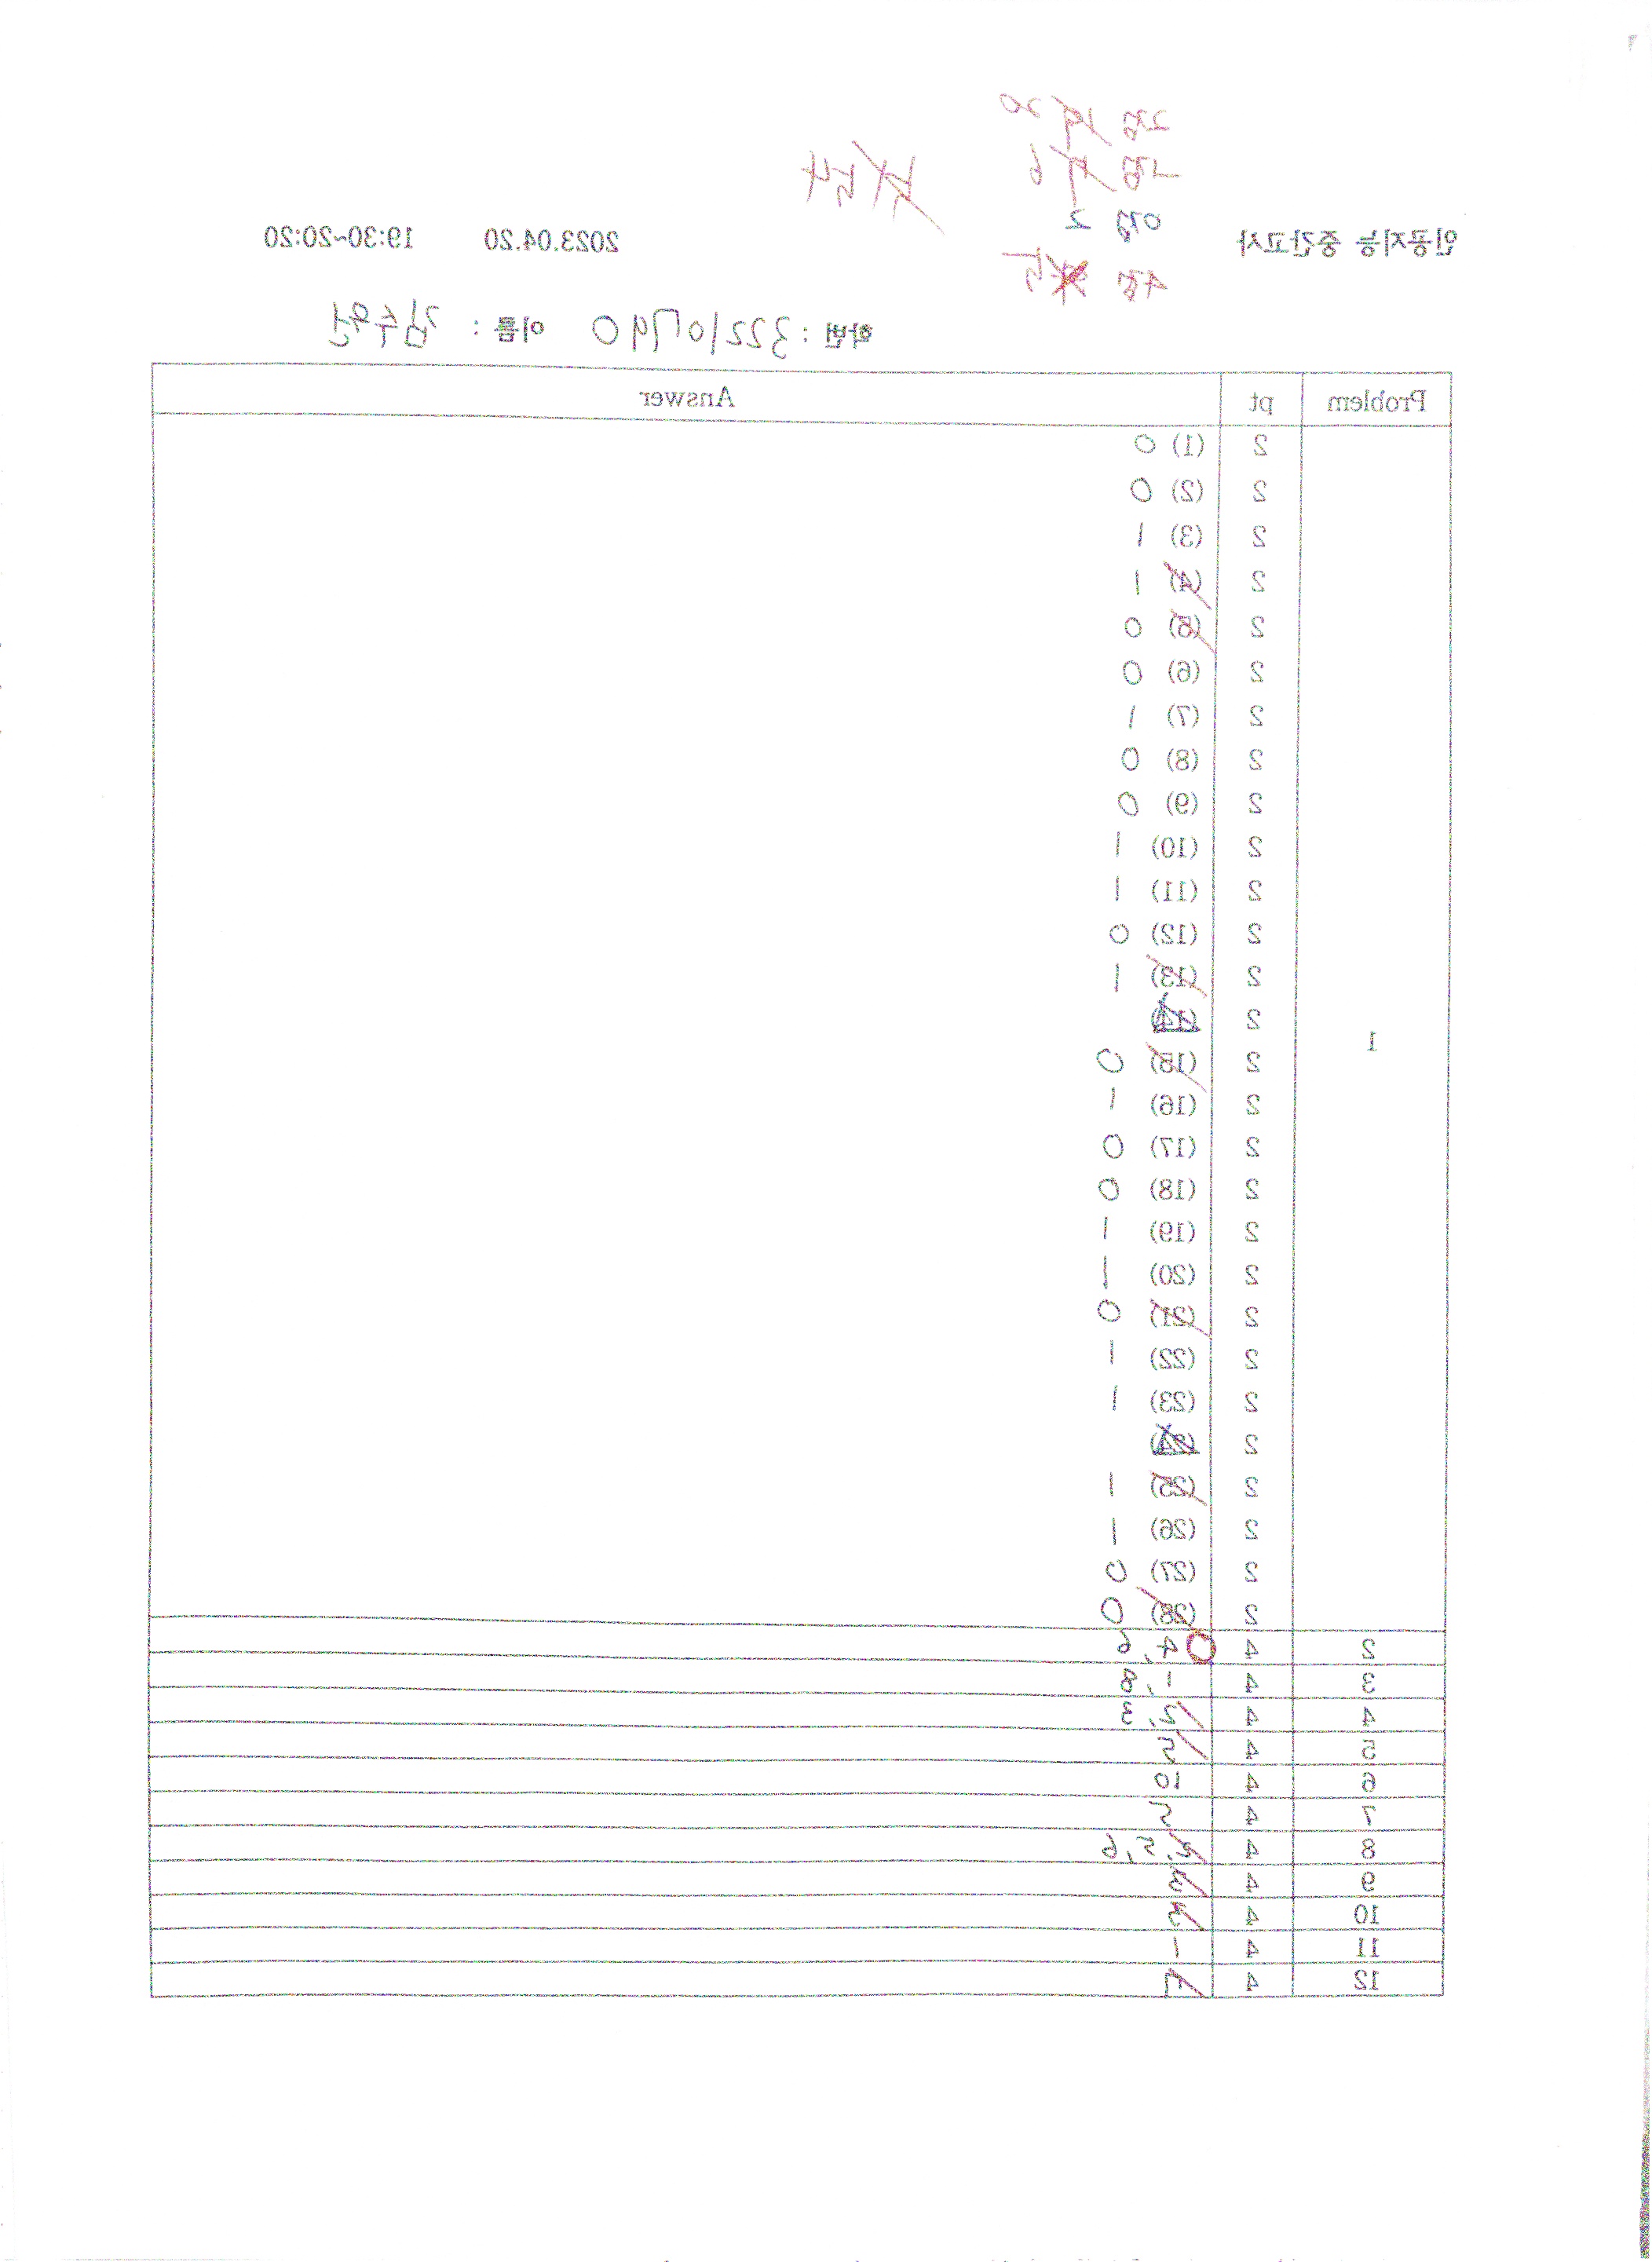 2점 20
1점 6
0점 2
4점 5
54
인공지능 중간고사 2023.04.20 19:30~20:20
학번 : 32210790 이름 :
Problem pt Answer
1
2 (1) 0
2 (2) 0
2 (3) 1
2 (4) 1
2 (5) 0
2 (6) 0
2 (7) 1
2 (8) 0
2 (9) 0
2 (10) 1
2 (11) 1
2 (12) 0
2 (13) 1
2 (14)
2 (15) 0
2 (16) 1
2 (17) 0
2 (18) 0
2 (19) 1
2 (20) 1
2 (21) 0
2 (22) 1
2 (23) 1
2 (24)
2 (25) 1
2 (26) 1
2 (27) 0
2 (28) 0
2 4 4, 6
3 4 1, 8
4 4 2, 3
5 4 5
6 4 10
7 4
8 4 2, 5, 6
9 4 3
10 4
11 4 1
12 4